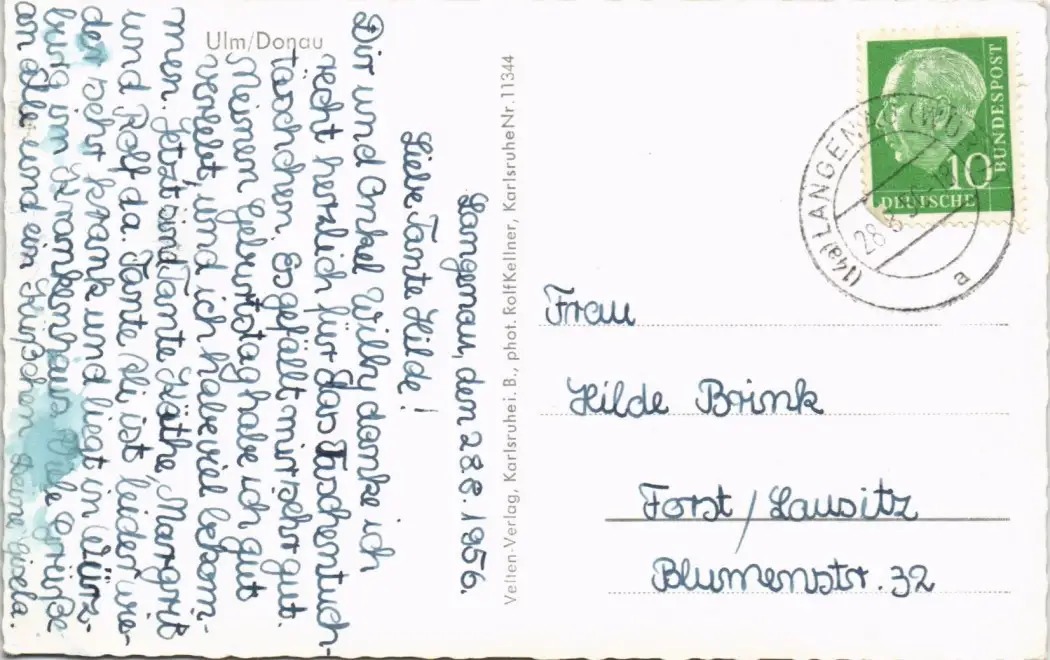 Ulm/Donau
Langenau, den 28.8.1956.
Liebe Tante Hilde!
Dir und Onkel Willy danke ich
recht herzlich für das Taschentuch-
täschchen. Es gefällt mir sehr gut.
Meinen Geburtstag habe ich gut
verlebt, und ich habe viel bekom-
men. Jetzt sind Tante Käthe, Margrit
und Rolf da. Tante Li, ist leider wie-
der sehr krank und liegt in Würz-
burg im Krankenhaus. Viele Grüße
an alle und ein Küßchen Deine Gisela.
Velten-Verlag, Karlsruhe i. B., phot. Rolf Kellner, Karlsruhe Nr. 11344
DEUTSCHE
BUNDESPOST
10
(14a) LANGENAU (WÜ
28.8.56-18
a
Frau
Hilde Brink
Forst / Lausitz
Blumenstr. 32